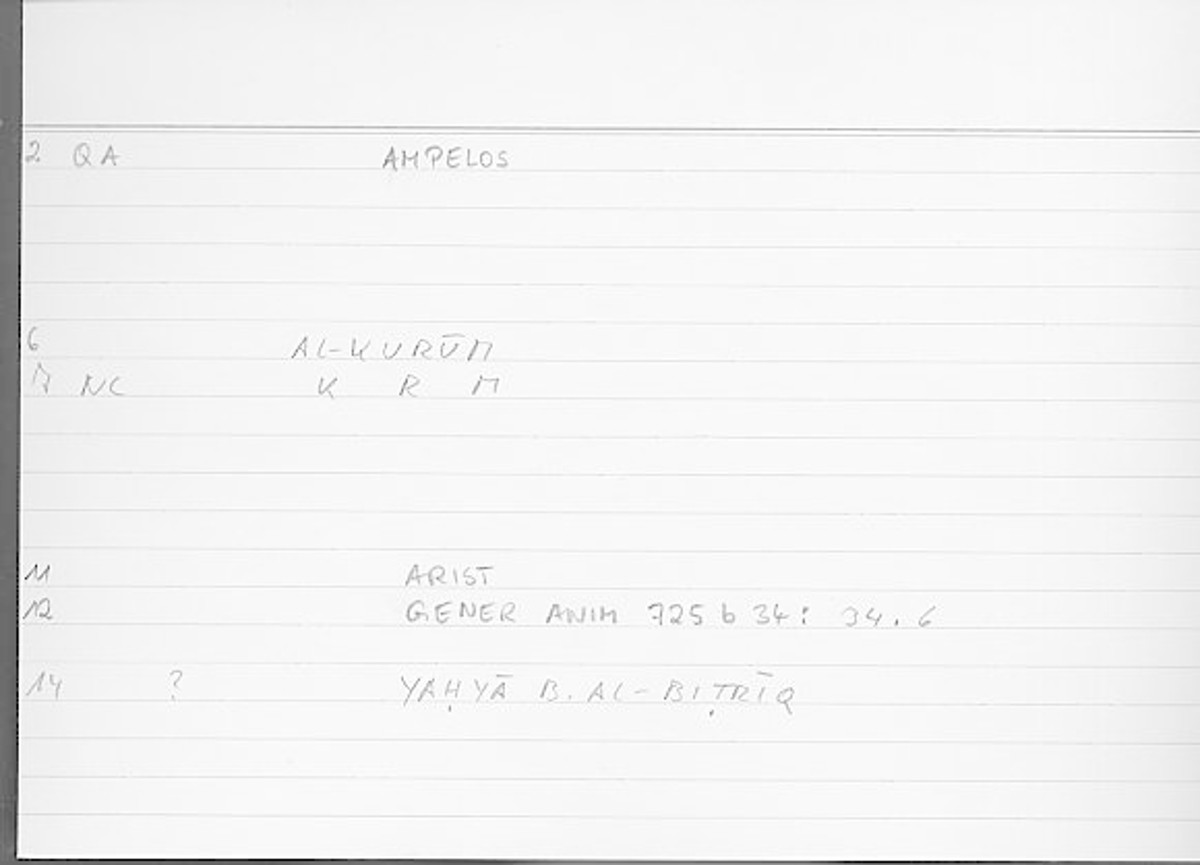 2 QA AMPELOS
6 AL-KURŪM
7 NC K R M
11 ARIST
12 GENER ANIM 725 b 34: 34.6
14 ? YAḤYĀ B. AL-BIṬRĪQ